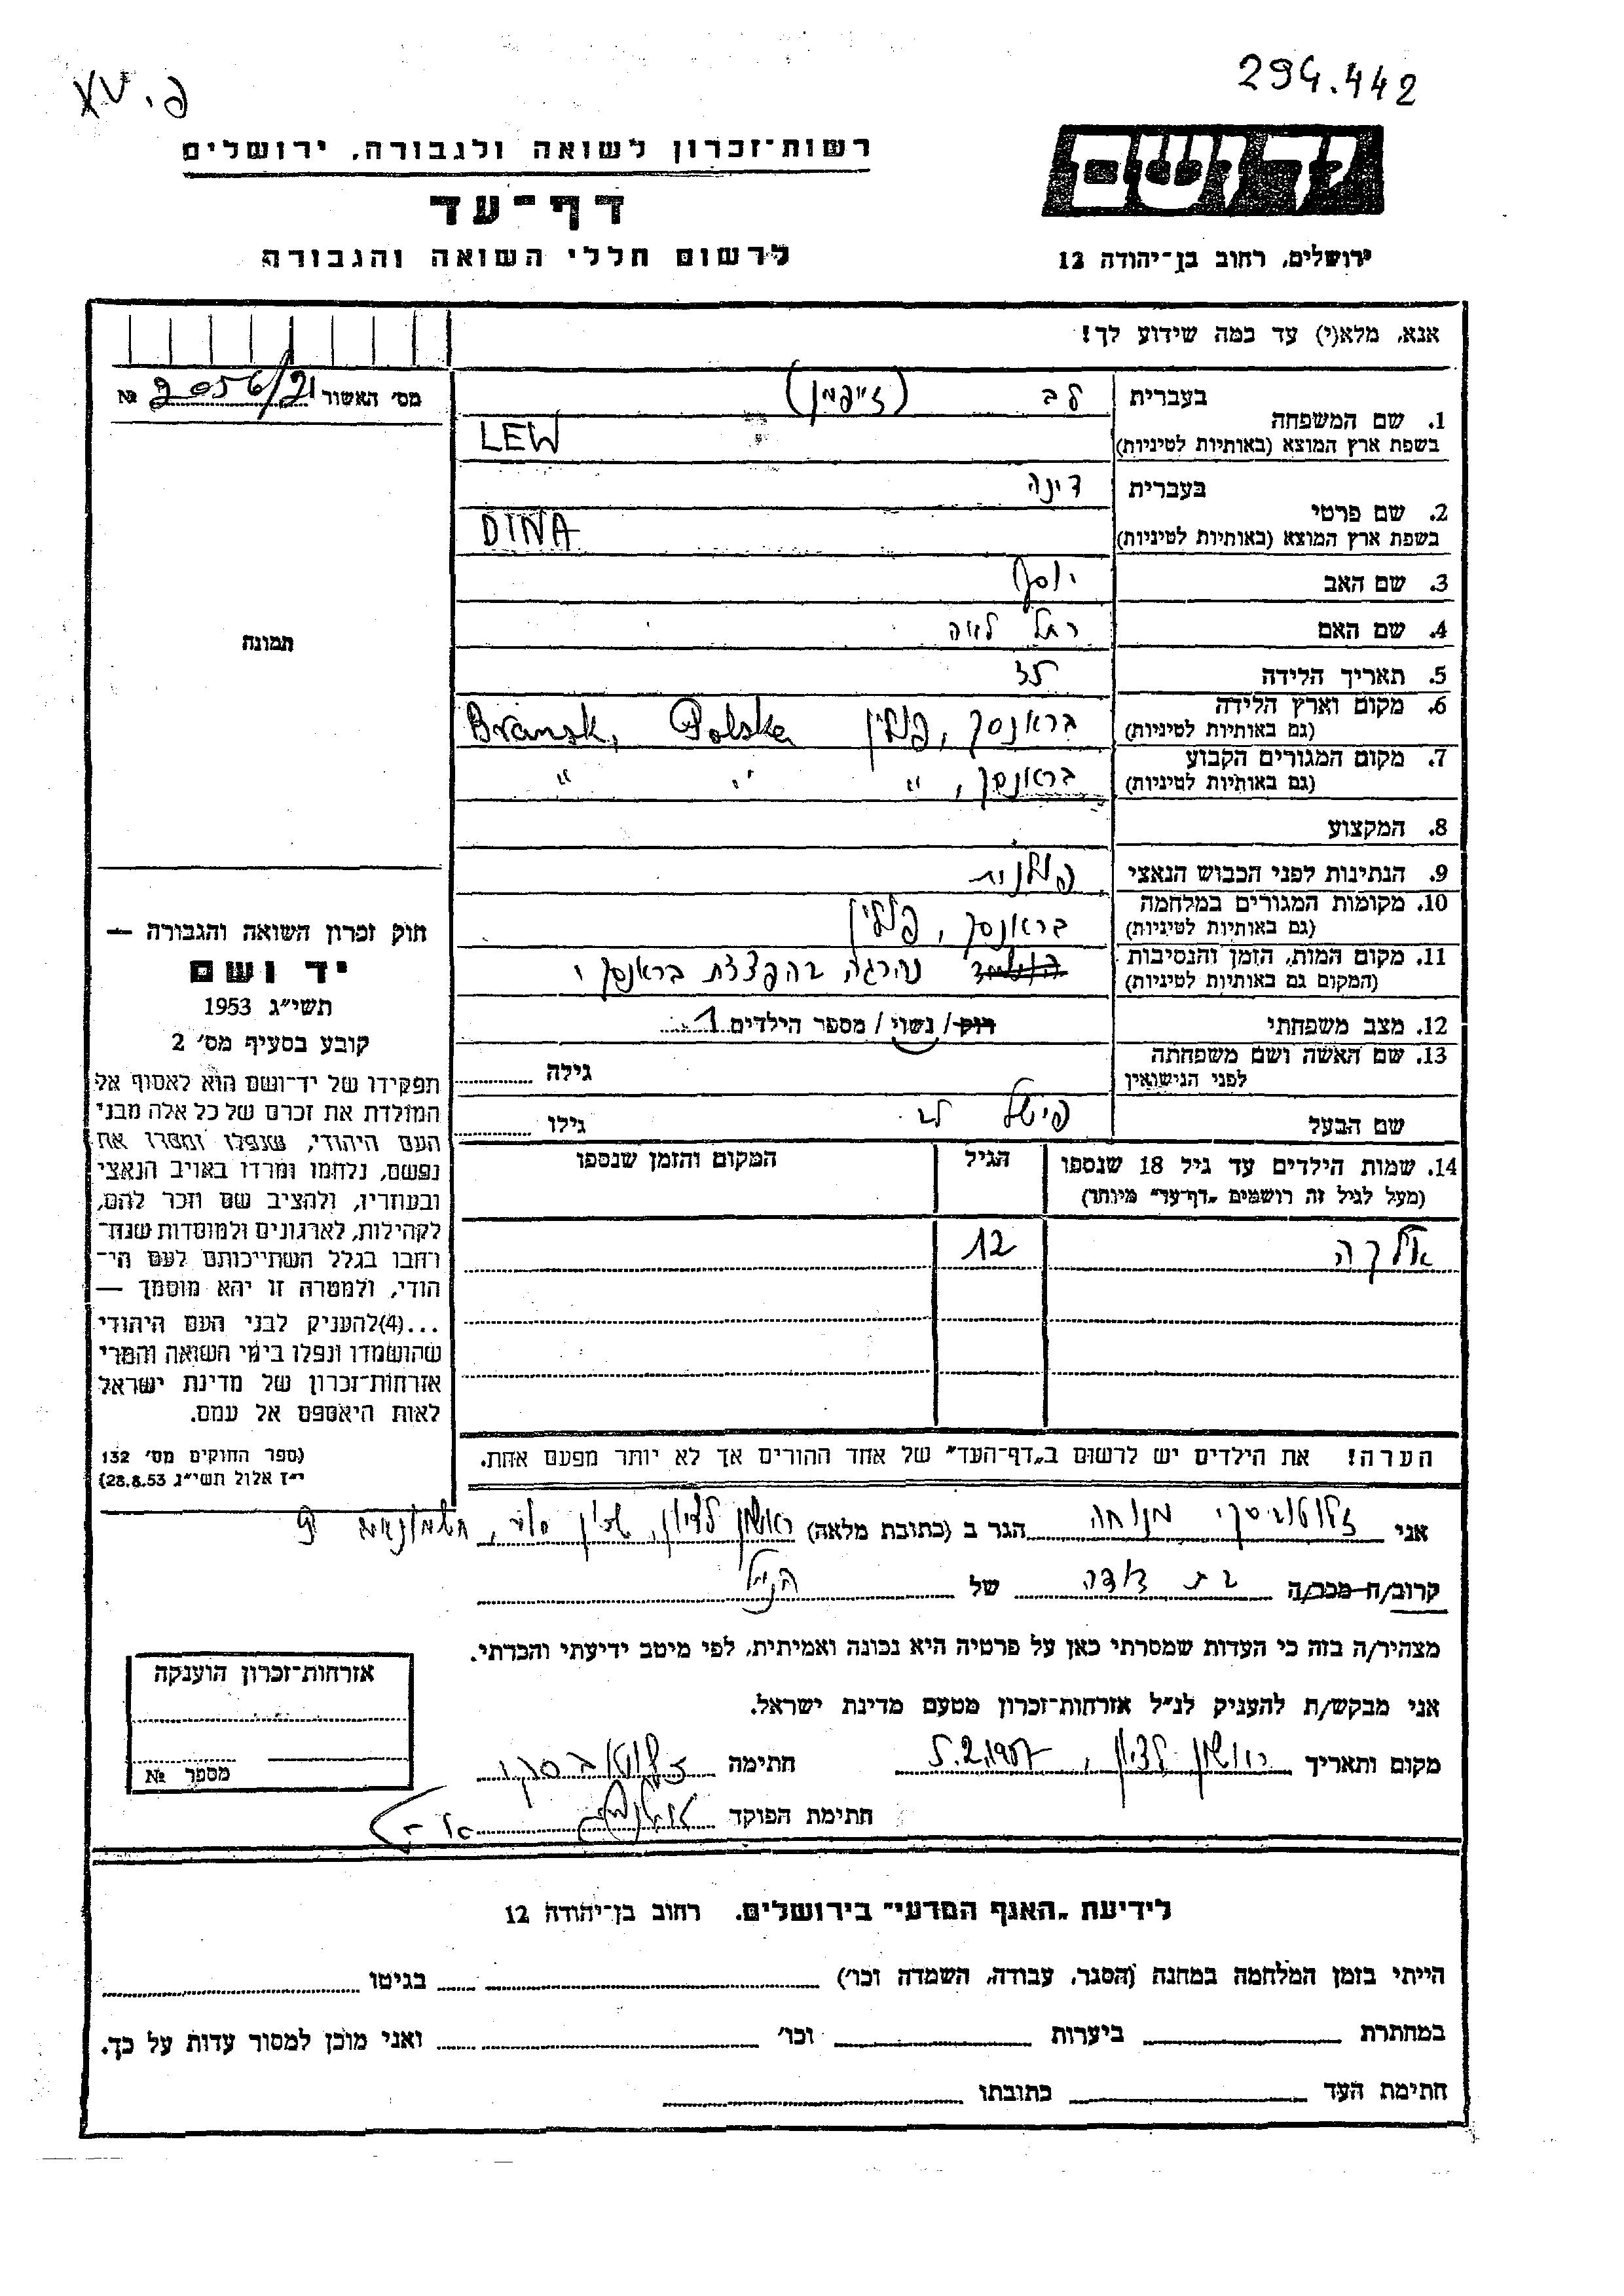 294.442
פ. XV
יד ושם
ירושלים, רחוב בן־יהודה 12
רשות־זכרון לשואה ולגבורה, ירושלים
דף־עד
לרשום חללי השואה והגבורה
אנא, מלא(י) עד כמה שידוע לך!
מס' האשור 2056/21 №
1. שם המשפחה
בעברית לב (זייפמן)
בשפת ארץ המוצא (באותיות לטיניות) LEW
2. שם פרטי
בעברית דינה
בשפת ארץ המוצא (באותיות לטיניות) DINA
3. שם האב יוסף
4. שם האם רחל לאה
5. תאריך הלידה 35
6. מקום וארץ הלידה (גם באותיות לטיניות) בראנסק, פולין Bransk, Polska
7. מקום המגורים הקבוע (גם באותיות לטיניות) בראנסק, " " "
8. המקצוע
9. הנתינות לפני הכבוש הנאצי פולנית
10. מקומות המגורים במלחמה (גם באותיות לטיניות) בראנסק, פולין
11. מקום המות, הזמן והנסיבות (המקום גם באותיות לטיניות) נהרגה בהפצצת בראנסק
12. מצב משפחתי רוק/ נשוי / מספר הילדים 1
13. שם האשה ושם משפחתה לפני הנישואין גילה
שם הבעל פישל לב גילו
14. שמות הילדים עד גיל 18 שנספו (מעל לגיל זה רושמים „דף־עד" מיוחד) הגיל המקום והזמן שנספו
אלקה 12
תמונה
חוק זכרון השואה והגבורה —
יד ושם
תשי"ג 1953
קובע בסעיף מס' 2
תפקידו של יד־ושם הוא לאסוף אל
המולדת את זכרם של כל אלה מבני
העם היהודי, שנפלו ומסרו את
נפשם, נלחמו ומרדו באויב הנאצי
ובעוזריו, ולהציב שם וזכר להם,
לקהילות, לארגונים ולמוסדות שנח־
רחבו בגלל השתייכותם לעם הי־
הודי, ולמטרה זו יהא מוסמך —
...(4)להעניק לבני העם היהודי
שהושמדו ונפלו בימי השואה והמרי
אזרחות־זכרון של מדינת ישראל
לאות היאספם אל עמם.
(ספר החוקים מס' 132
י"ז אלול תשי"ג 28.8.53)
הערה! את הילדים יש לרשום ב„דף־העד" של אחד ההורים אך לא יותר מפעם אחת.
אני זלוטוביסקי מנוחה הגר ב (כתובת מלאה) ראשון לציון, שכון
קרוב/ה מכר/ה בת דודה של הנ"ל
מצהיר/ה בזה כי העדות שמסרתי כאן על פרטיה היא נכונה ואמיתית, לפי מיטב ידיעתי והכרתי.
אני מבקש/ת להעניק לנ"ל אזרחות־זכרון מטעם מדינת ישראל.
מקום ותאריך ראשון לציון, 5.2.1957 חתימה
חתימת הפוקד
אזרחות־זכרון הוענקה
מספר №
לידיעת „האגף המדעי" בירושלים. רחוב בן־יהודה 12
הייתי בזמן המלחמה במחנה (הסגר, עבודה, השמדה וכו') בגיטו
במחתרת ביערות וכו' ואני מוכן למסור עדות על כך.
חתימת העד כתובתו